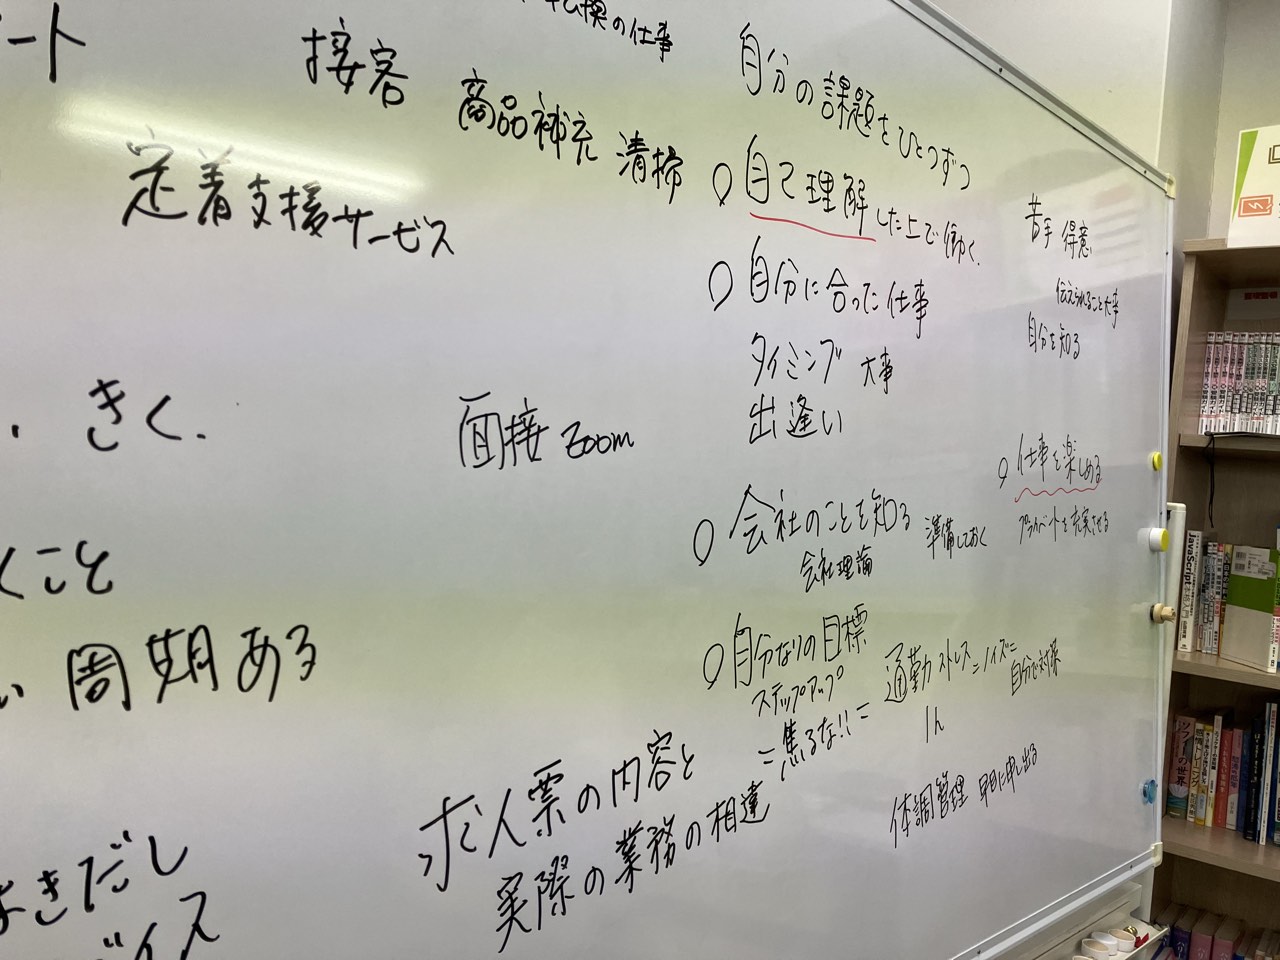 ート
接客
転換の仕事
商品補充 清掃
定着支援サービス
・きく.
面接 zoom
くこと
周期ある
求人票の内容と
実際の業務の相違
きだし
イス
自分の課題をひとつずつ
○ 自己理解した上で働く.
苦手 得意
伝えられること大事
自分を知る
○ 自分に合った仕事
タイミング 大事
出逢い
○ 仕事を楽しめる
プライベートを充実させる
○ 会社のことを知る 準備しておく
会社理論
○ 自分なりの目標
ステップアップ
=焦るな!!=
通勤 ストレス=ノイズ=
自分で対策
1h
体調管理 早目に申し出る
JavaScript